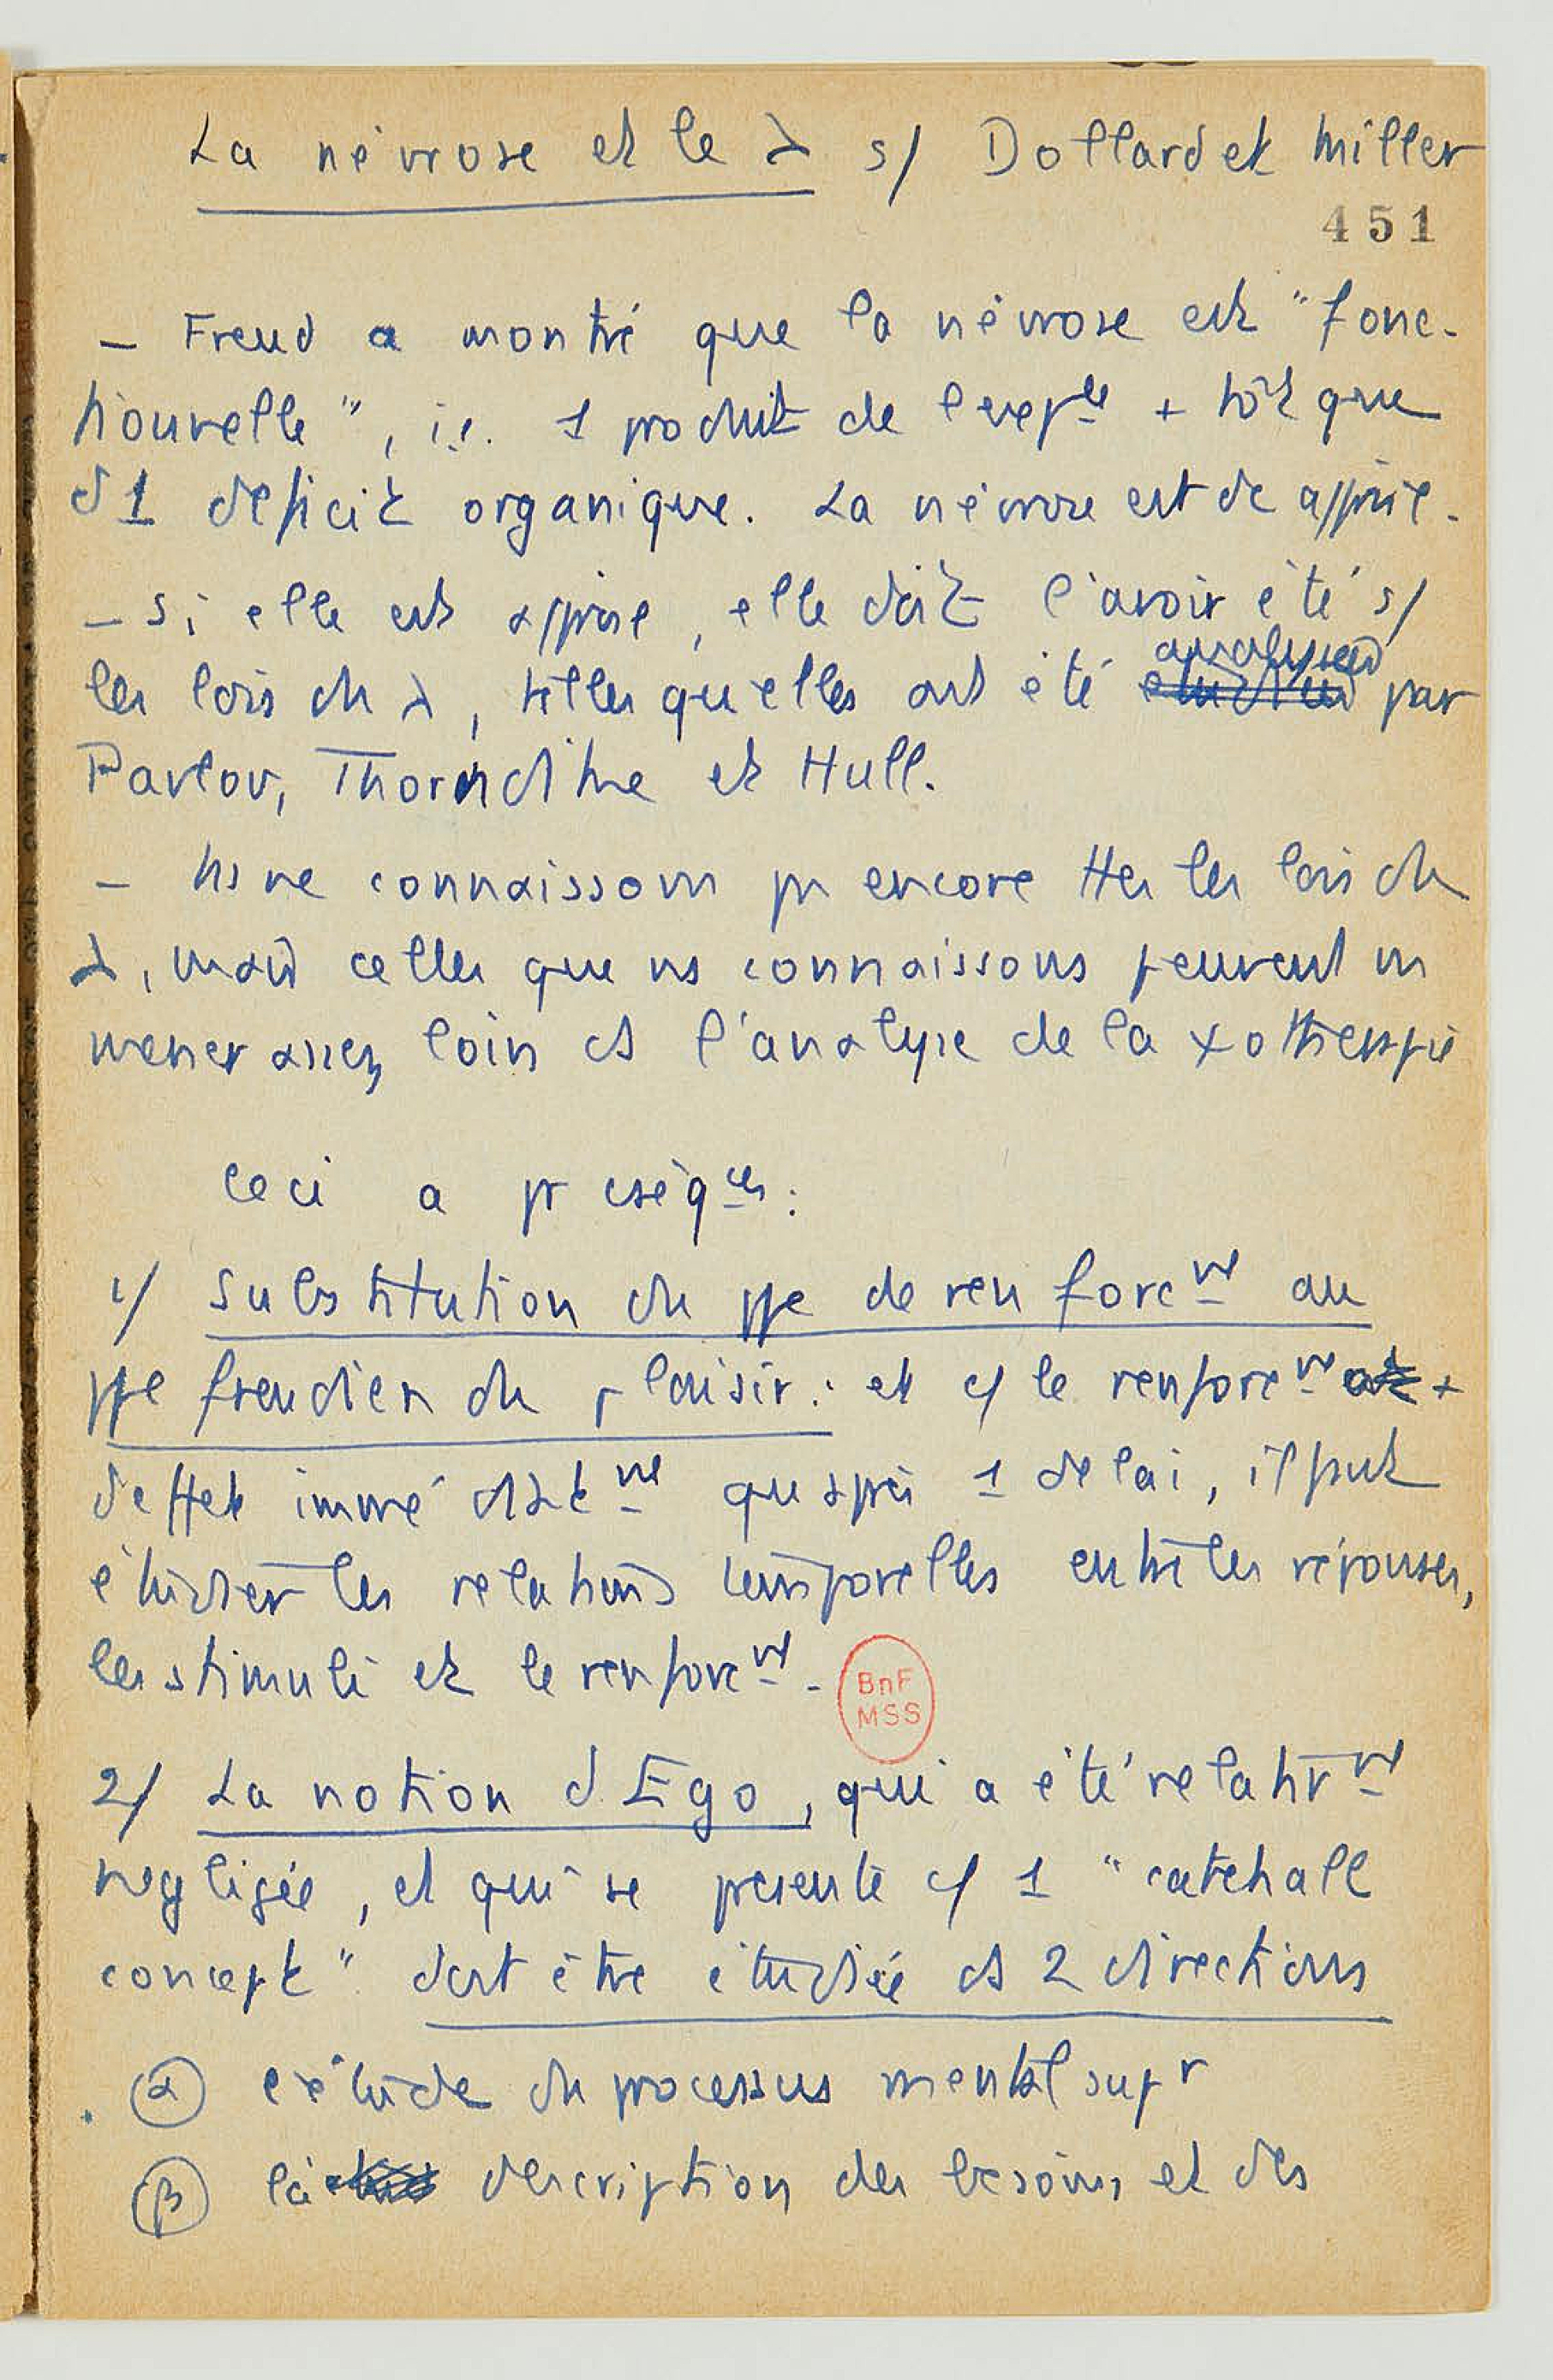 La névrose et le λ s/ Dollard et Miller
451
– Freud a montré que la névrose est "fonc-
tionnelle", i.e. 1 produit de l'expce + tôt que
d'1 deficit organique. La névrose est dc apprise.
– Si elle est apprise, elle doit l'avoir été s/
les lois du λ, telles qu'elles ont été analysées par
Pavlov, Thorndike et Hull.
– ns ne connaissons ps encore ttes les lois du
λ, mais celles que ns connaissons peuvent ns
mener assez loin ds l'analyse de la ψothérapie
Ceci a pr cséqces :
1/ Substitution du ppe de renforcmt au
ppe freudien du plaisir : et c/ le renforcmt a +
d'effet immédiatmt qu'après 1 delai, il faut
étudier les relations temporelles entre les réponses,
les stimuli et le renforcmt.
BnF
MSS
2/ La notion d'Ego, qui a été relativmt
negligée, et qui se presente c/ 1 "catchall
concept" doit être étudiée ds 2 directions
α l'étude du processus mental supr
β la description des besoins et des